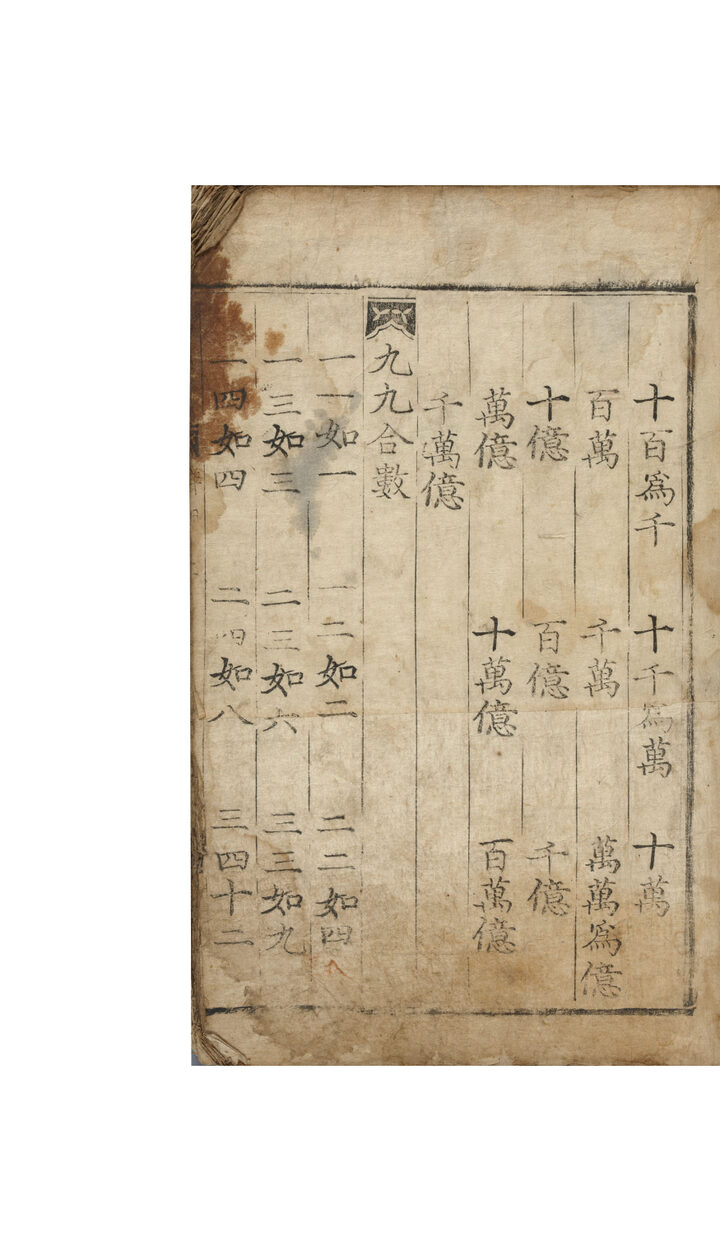 十百爲千 十千爲萬 十萬
百萬 千萬 萬萬爲億
十億 百億 千億
萬億 十萬億 百萬億
千萬億
九九合數
一一如一 一二如二 二二如四
一三如三 二三如六 三三如九
一四如四 二四如八 三四十二